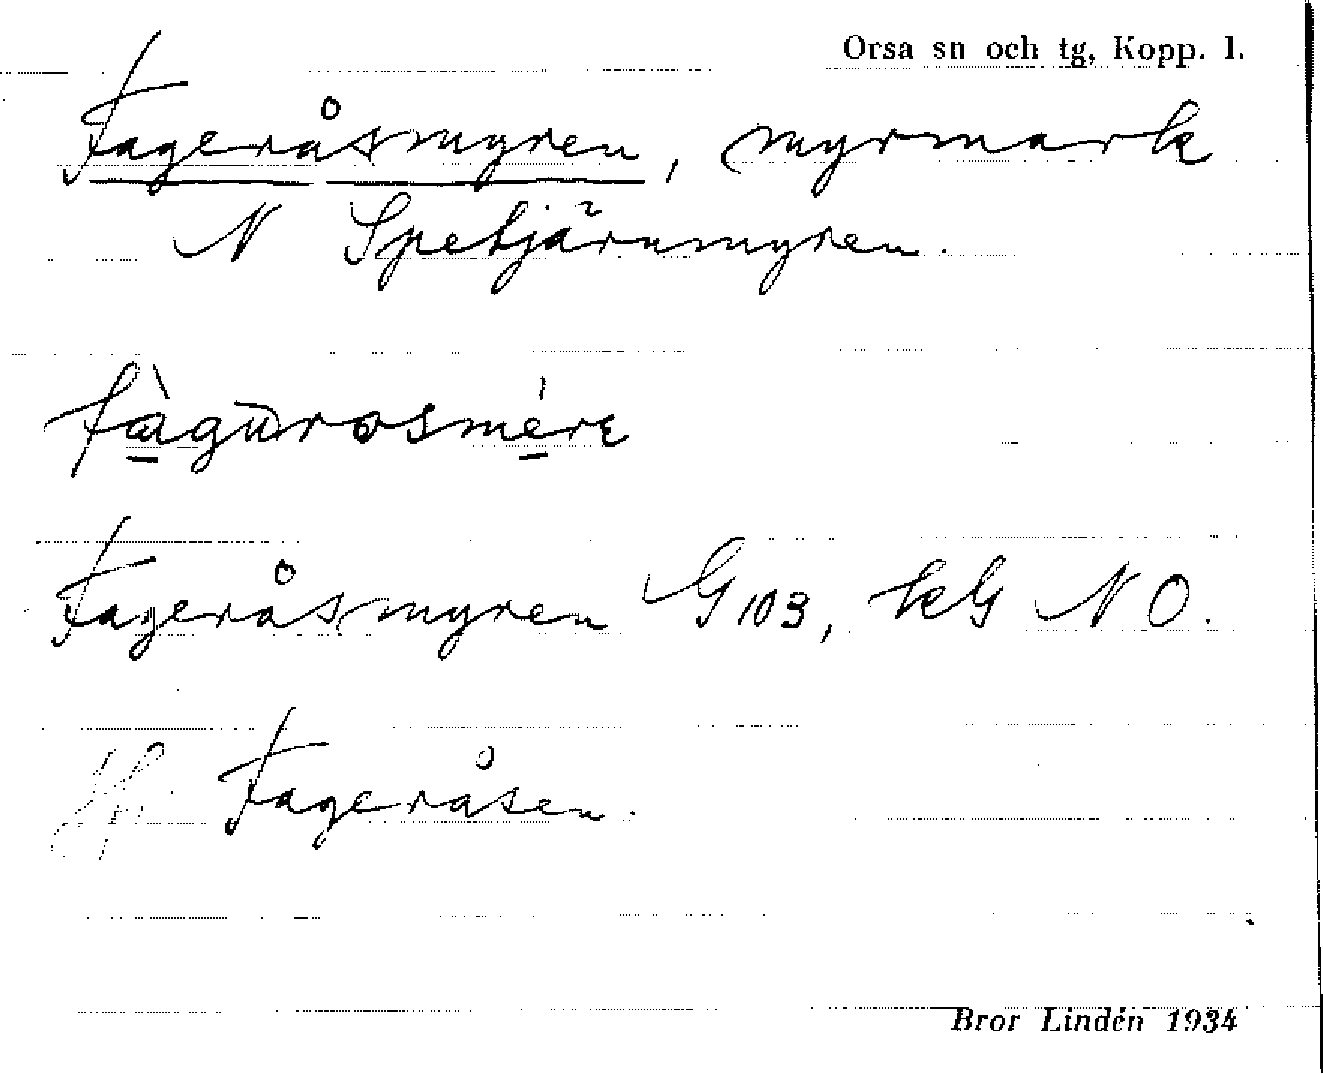 Orsa sn och tg, Kopp. l.
Fageråsmyren, myrmark
N Spetjärnmyren.
Fageråsmyren G 103, kG NO.
Jfr Fageråsen.
Bror Lindén 1934